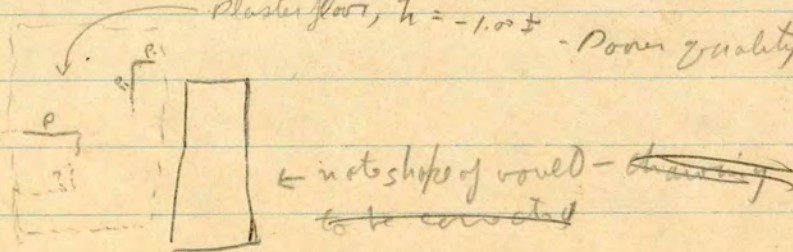 Plaster floor, h = -1.00 ±
- Poorer quality
P.
P.
P
?
← note shape of voult - drawing
to be corrected